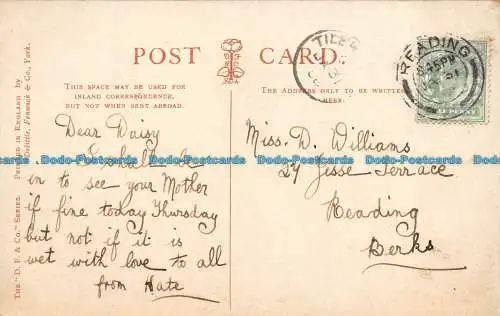 POST CARD.
THIS SPACE MAY BE USED FOR
INLAND CORRESPONDENCE,
BUT NOT WHEN SENT ABROAD.
THE ADDRESS ONLY TO BE WRITTEN
HERE.
Dear Daisy
I shall be
in to see your Mother
if fine today Thursday
but not if it is
wet with love to all
from Kate
Miss. D. Williams
27 Jesse Terrace
Reading
Berks
READING
8.45PM
TILE
PENNY
THE "D. F. & Co." SERIES. PRINTED IN ENGLAND by
Fenwick & Co., York.
Dodo-Postcards Dodo-Postcards Dodo-Postcards Dodo-Postcards